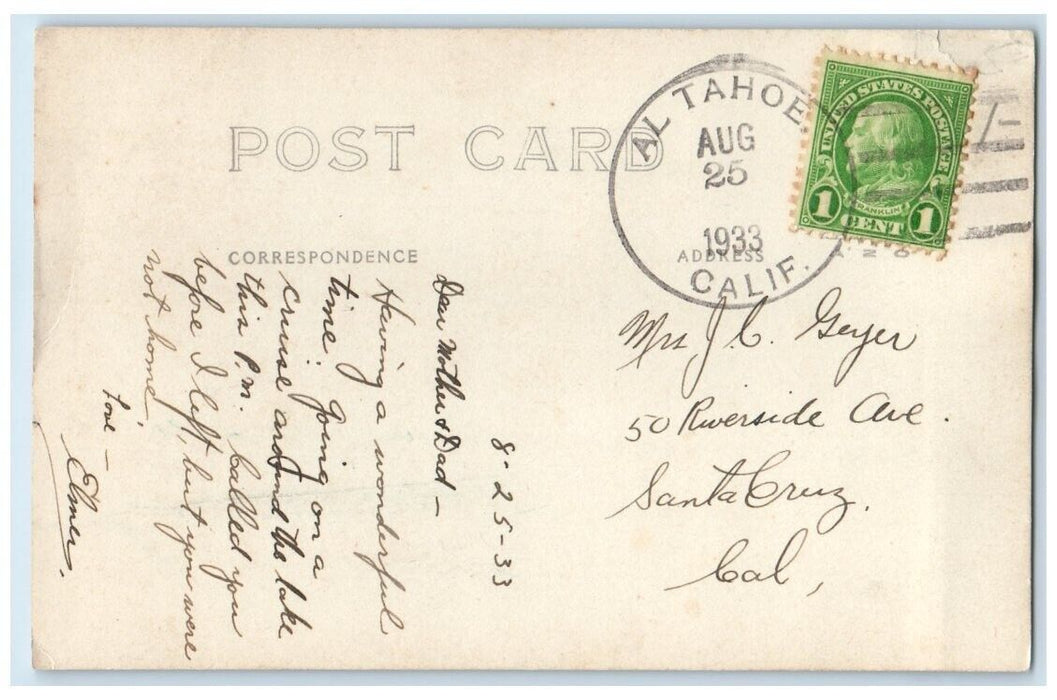 POST CARD
AL TAHOE.
AUG
25
1933
CALIF.
UNITED STATES POSTAGE
FRANKLIN
1 CENT 1
CORRESPONDENCE
ADDRESS
8-25-33
Dear Mother & Dad -
Having a wonderful
time. Going on a
cruise around the lake
this P.M. Called you
before I left, but you were
not home.
Love -
Elmer.
Mrs J. C. Geyer
50 Riverside Ave.
Santa Cruz.
Cal,